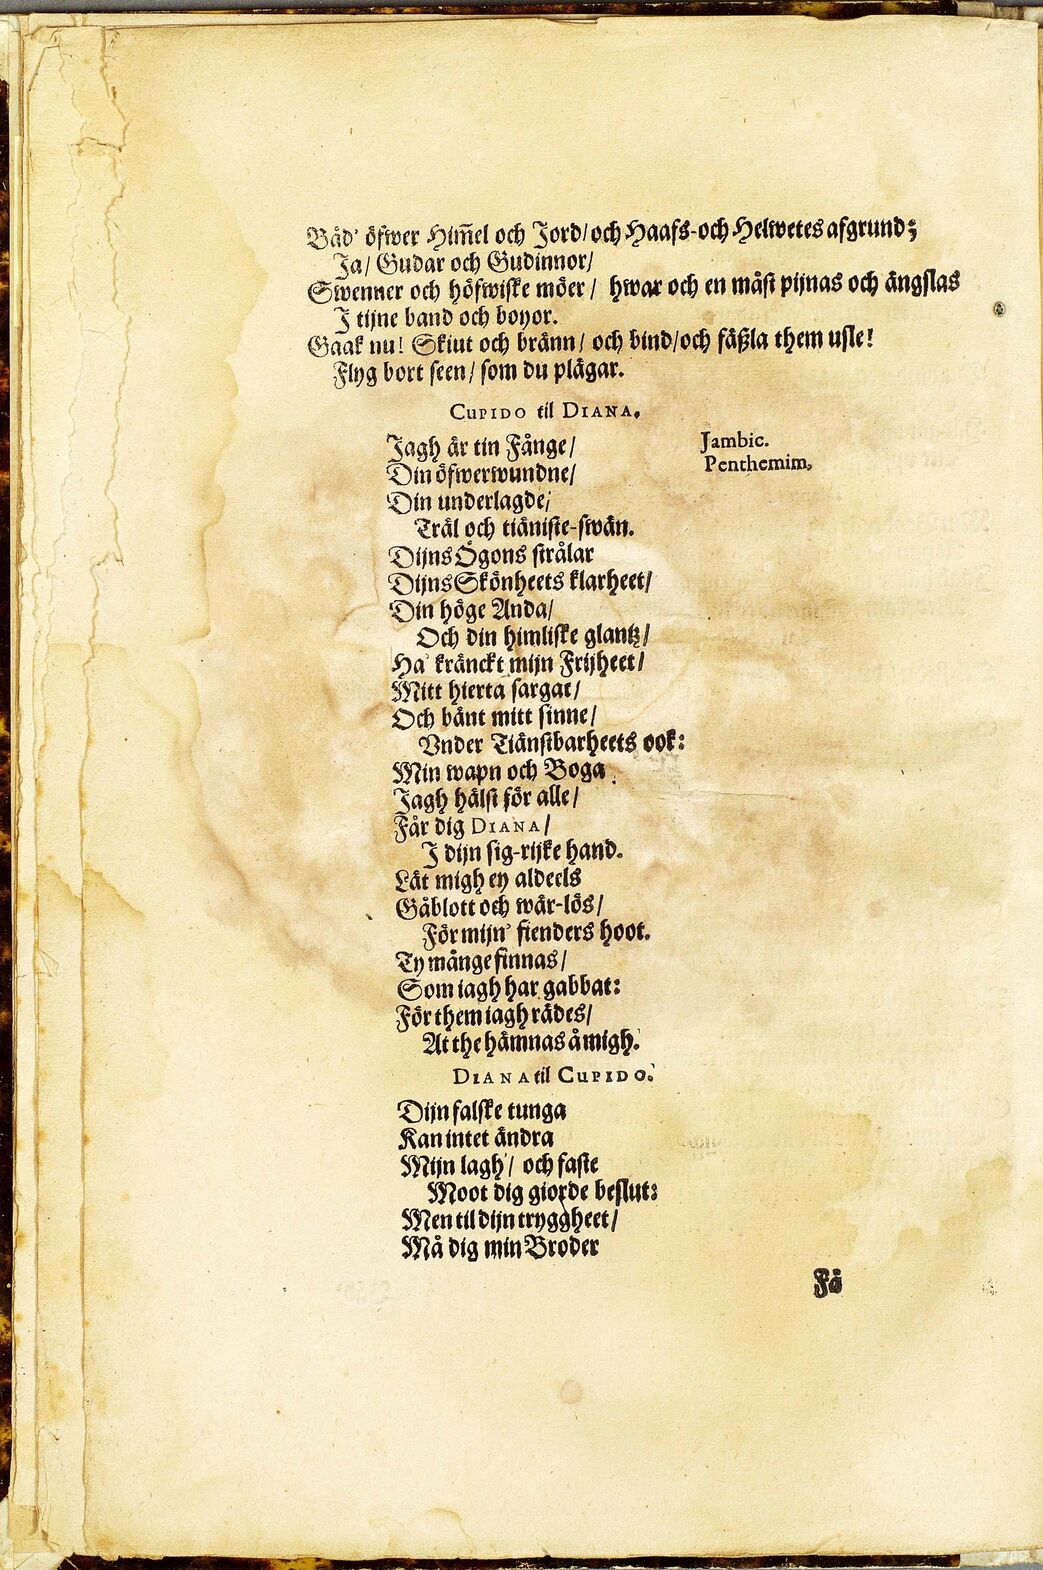 Båd' öfwer Him̃el och Jord/och Haafs-och Helwetes afgrund;
Ja/ Gudar och Gudinnor/
Swenner och höfwiske möer/ hwar och en måst pijnas och ängslas
I tijne band och boyor.
Gaak nu! Skiut och bränn/ och bind/och fäßla them usle!
Flyg bort seen/ som du plägar.
CUPIDO til DIANA.
Jagh är tin Fånge/
Jambic.
Din öfwerwundne/
Penthemim,
Din underlagde/
Träl och tiäniste-swän.
Dijns Ögons strålar
Dijns Skönheets klarheet/
Din höge Anda/
Och din himliske glantz/
Ha' kränckt mijn Frijheet/
Mitt hierta sargat/
Och bånt mitt sinne/
Vnder Tiänstbarheets ook:
Min wapn och Boga
Jagh hälst för alle/
Får dig DIANA/
I dijn sig-rijke hand.
Lät migh ey aldeels
Gåblott och wär-lös/
För mijn' fienders hoot.
Ty mänge finnas/
Som iagh har gabbat:
För them iagh rädes/
At the hämnas å migh.
DIANA til CUPIDO.
Dijn falske tunga
Kan intet ändra
Mijn lagh/ och faste
Moot dig giorde beslut:
Men til dijn tryggheet/
Må dig min Broder
Få